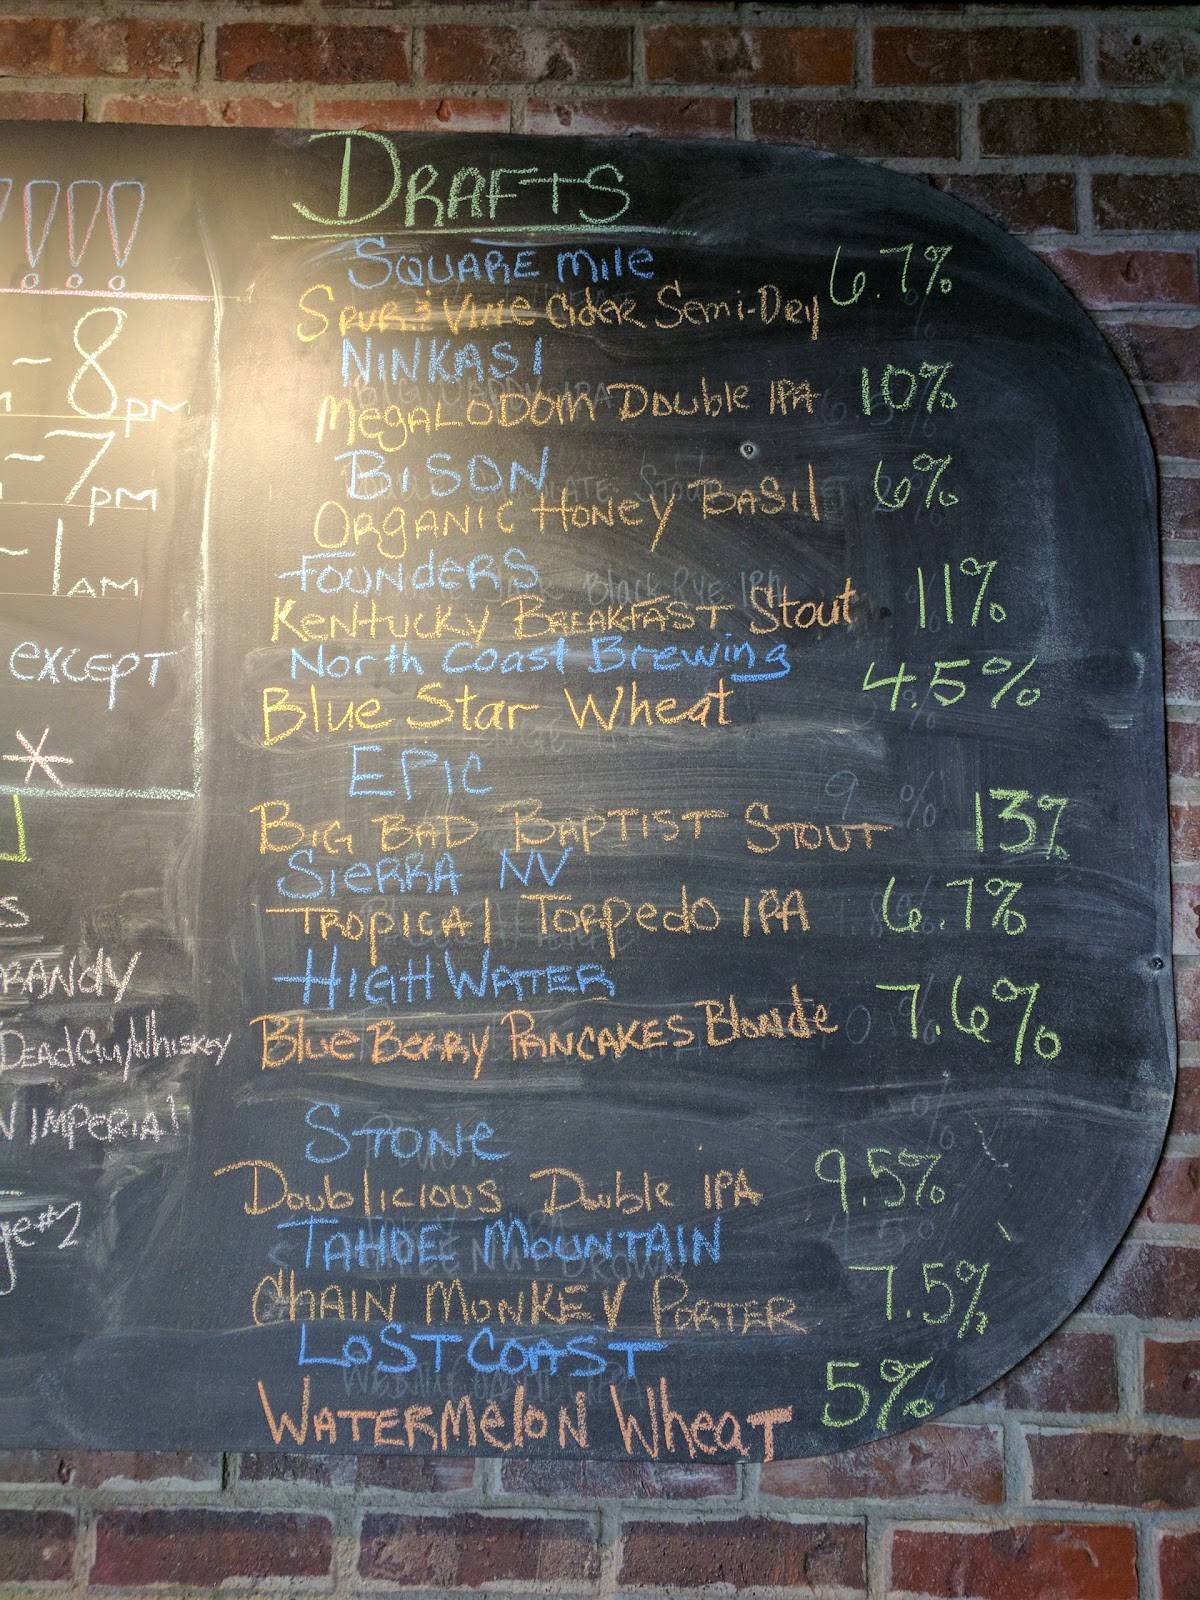 !!!
-8PM
-7PM
-1AM
EXCEPT
*
RANDY
DEADGUYWHISKEY
IMPERIAL
#2
DRAFTS
SQUARE mile 6.7%
SPUR & VINE CIDER SEMI-DRY
NINKASI
MEGALODOM DOUBLE IPA 10%
BISON
ORGANIC HONEY BASIL 6%
FOUNDERS
KENTUCKY BREAKFAST STOUT 11%
North Coast Brewing
Blue Star Wheat 4.5%
EPIC
BIG BAD BAPTIST STOUT 13%
SIERRA NV
TROPICAL TORPEDO IPA 6.7%
HIGH WATER
Blue BERRY PANCAKES Blonde 7.6%
STONE
DOUBLICIOUS DOUBLE IPA 9.5%
TAHOE MOUNTAIN
CHAIN MONKEY PORTER 7.5%
LOST COAST
WATERMELON WHEAT 5%